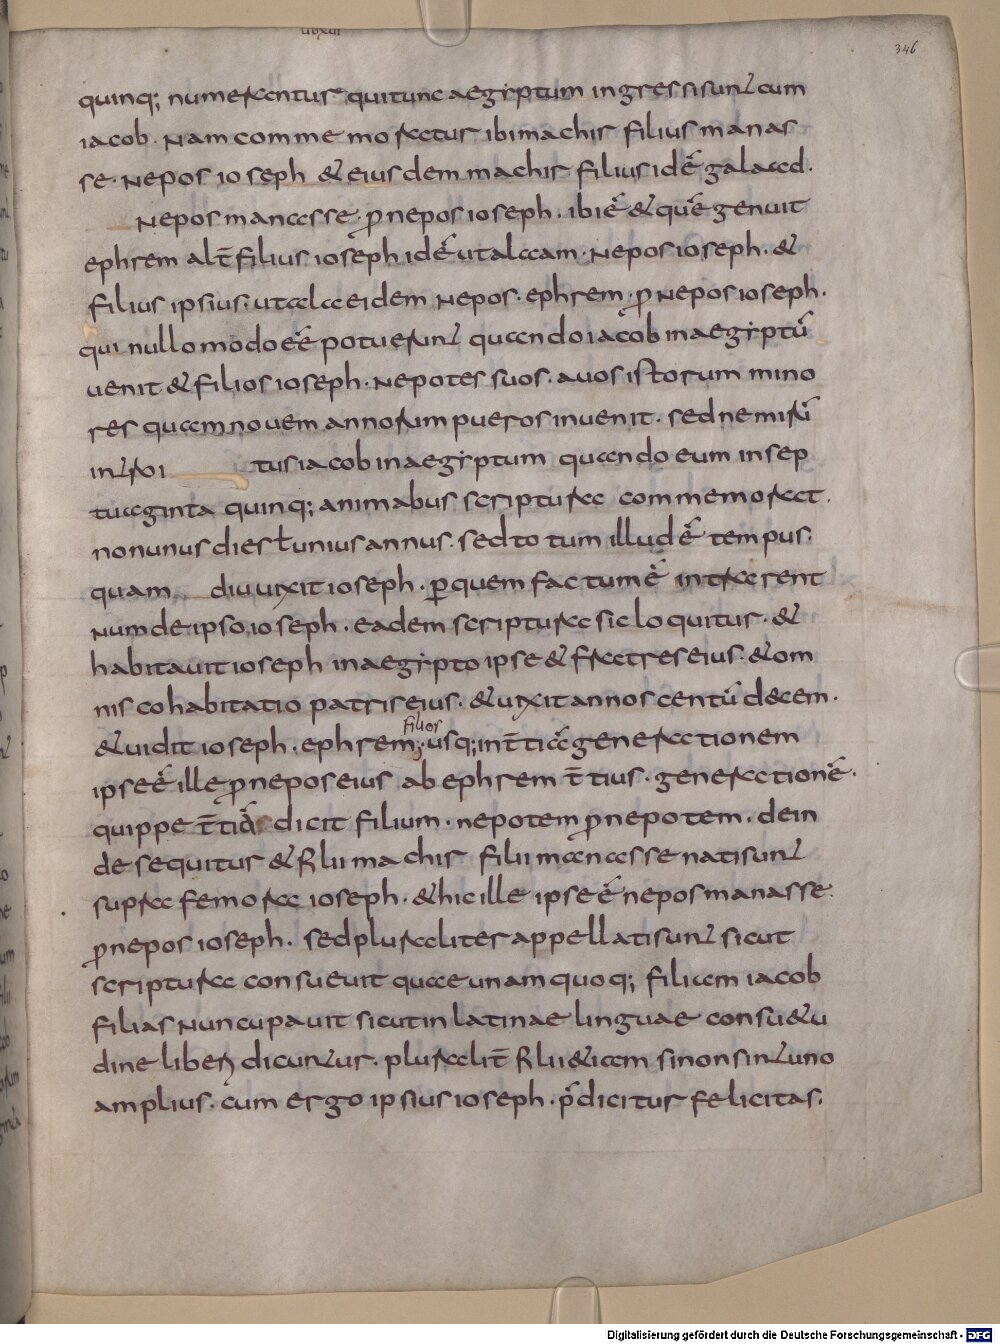 346
quinq; numerentur qui tunc aegyptum ingressi sunt cum
iacob. Nam commemoratur ibi machir filius manas
se. Nepos ioseph & eiusdem machir filius idē galaad.
Nepos manasse. ꝓnepos ioseph. ibi ē & quē genuit
ephrem alt̄ filius ioseph id ē utalaam. Nepos ioseph. &
filius ipsius. utaala eidem Nepos. ephrem. ꝓNepos ioseph.
qui nullo modo eē potuerunt quando iacob in aegyptū
uenit & filios ioseph. Nepotes suos. auos istorum mino
res quam nouem annorum pueros inuenit. sed nemirū
introi tus iacob in aegyptum quando eum in sep
tuaginta quinq; animabus scriptura commemorat.
non unus dies ł unius annus. sed totum illud ē tempus.
quam diu uixit ioseph. ꝑ quem factum ē intrarent
Num de ipso ioseph. eadem scriptura sic loquitur. &
habitauit ioseph in aegypto ipse & fratres eius. & om
nis cohabitatio patris eius. & uixit annos centū decem.
filios
& uidit ioseph. ephrem; usq; in t̄tiā generationem
ipse ē ille ꝓnepos eius ab ephrem t̄tius. generationē.
quippe t̄tiā dicit filium. nepotem ꝓnepotem. dein
de sequitur & filii machir filii manasse nati sunt
supra femora ioseph. & hic ille ipse ē nepos manasse.
ꝓnepos ioseph. sed pluraliter appellati sunt sicut
scriptura consueuit quae unam quoq; filiam iacob
filias Nuncupauit sicut in latinae linguae consu&u
dine liberi dicuntur. pluralit̄ filii &iam si non sint uno
amplius. cum ergo ipsius ioseph. p̄dicitur felicitas.
Digitalisierung gefördert durch die Deutsche Forschungsgemeinschaft - DFG